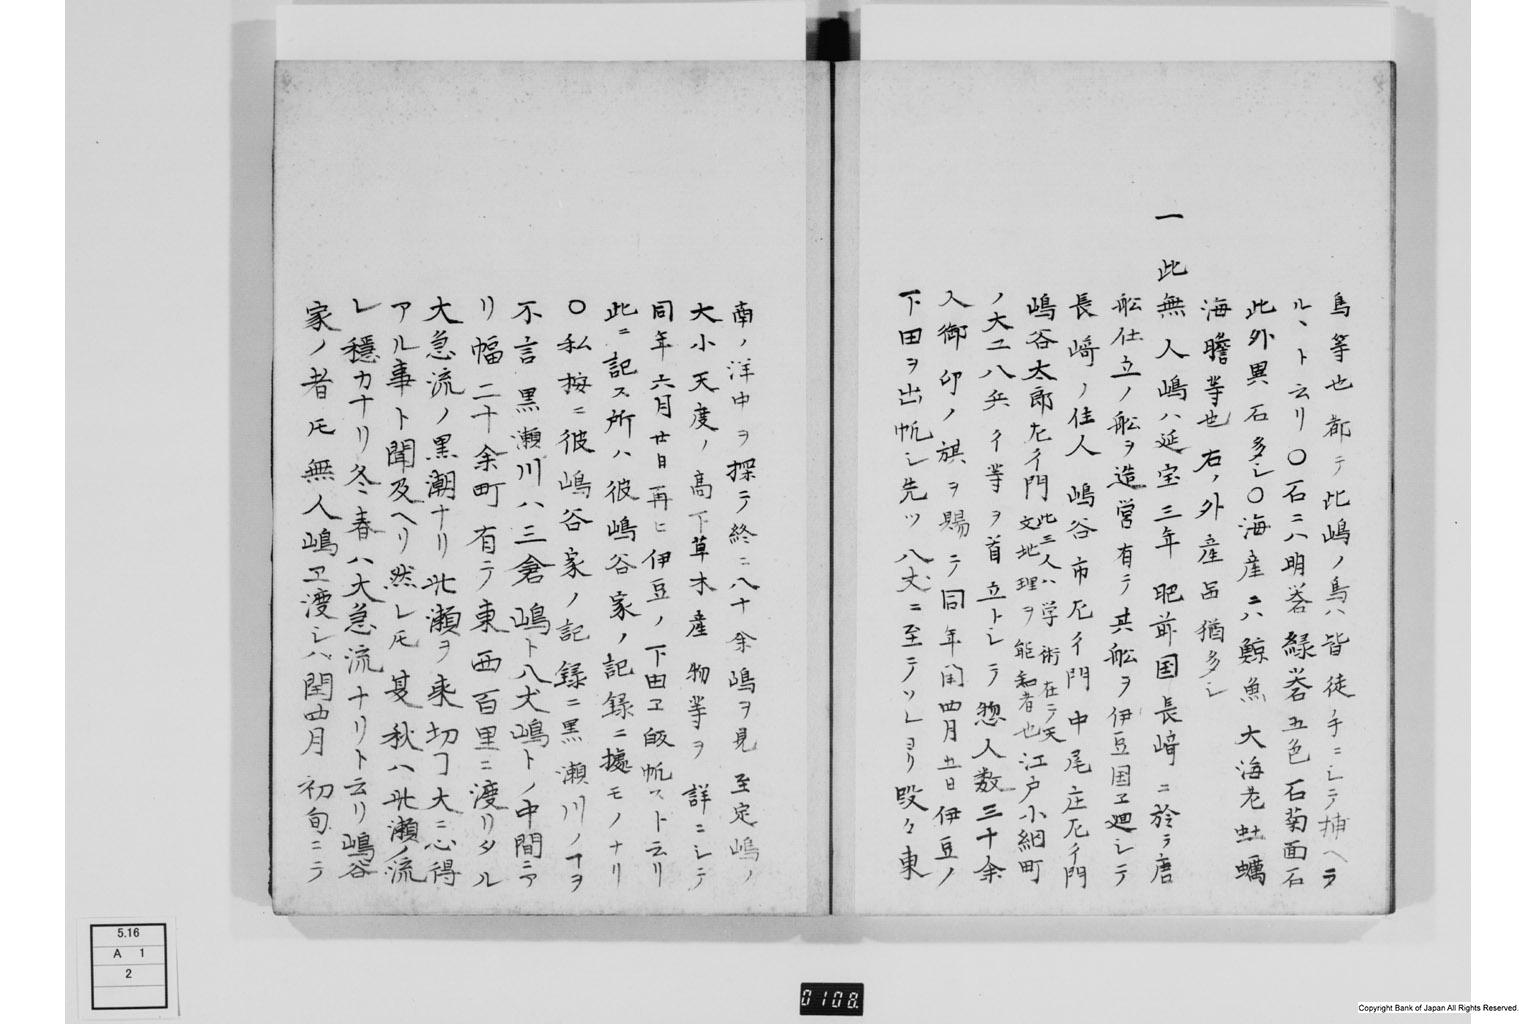 鳥等也都テ此嶋ノ鳥ハ皆徒手ニシテ捕ヘラ
ルヽト云リ〇石ニハ明礬緑礬五色石菊面石
此外異石多シ〇海産ニハ鯨魚大海老牡蠣
海膽等也右ノ外産品猶多シ
一 此無人嶋ハ延宝三年肥前国長﨑ニ於テ唐
舩仕立ノ舩ヲ造営有テ其舩ヲ伊豆国ヱ廻シテ
長﨑ノ住人嶋谷市左衛門中尾庄左衛門
嶋谷太郎左衛門此三人ハ学術在テ天文地理ヲ能知者也江戸小網町
ノ大工八兵衛等ヲ首立トシテ惣人数三十余
人御印ノ旗ヲ賜テ同年閏四月五日伊豆ノ
下田ヲ出帆シ先ツ八丈ニ至テソレヨリ段々東
南ノ洋中ヲ探テ終ニ八十余嶋ヲ見至定嶋ノ
大小天度ノ高下草木産物等ヲ詳ニシテ
同年六月廿日再ヒ伊豆ノ下田ヱ皈帆ストト云リ
此ニ記ス所ハ彼嶋谷家ノ記録ニ據モノナリ
〇私按ニ彼嶋谷家ノ記録ニ黒瀬川ノヿヲ
不言黒瀬川ハ三倉嶋ト八丈嶋トノ中間ニア
リ幅二十余町有テ東西百里ニ渡リタル
大急流ノ黒潮ナリ此瀬ヲ乗切ヿ大ニ心得
アル事ト聞及ヘリ然レ𪜈夏秋ハ此瀬ノ流
レ穏カナリ冬ヽ春ハ大急流ナリト云リ嶋谷
家ノ者𪜈無人嶋ヱ渡シハ閏四月初旬ニテ
5.16
A 1
2
0108.
Copyright Bank of Japan All Rights Reserved.